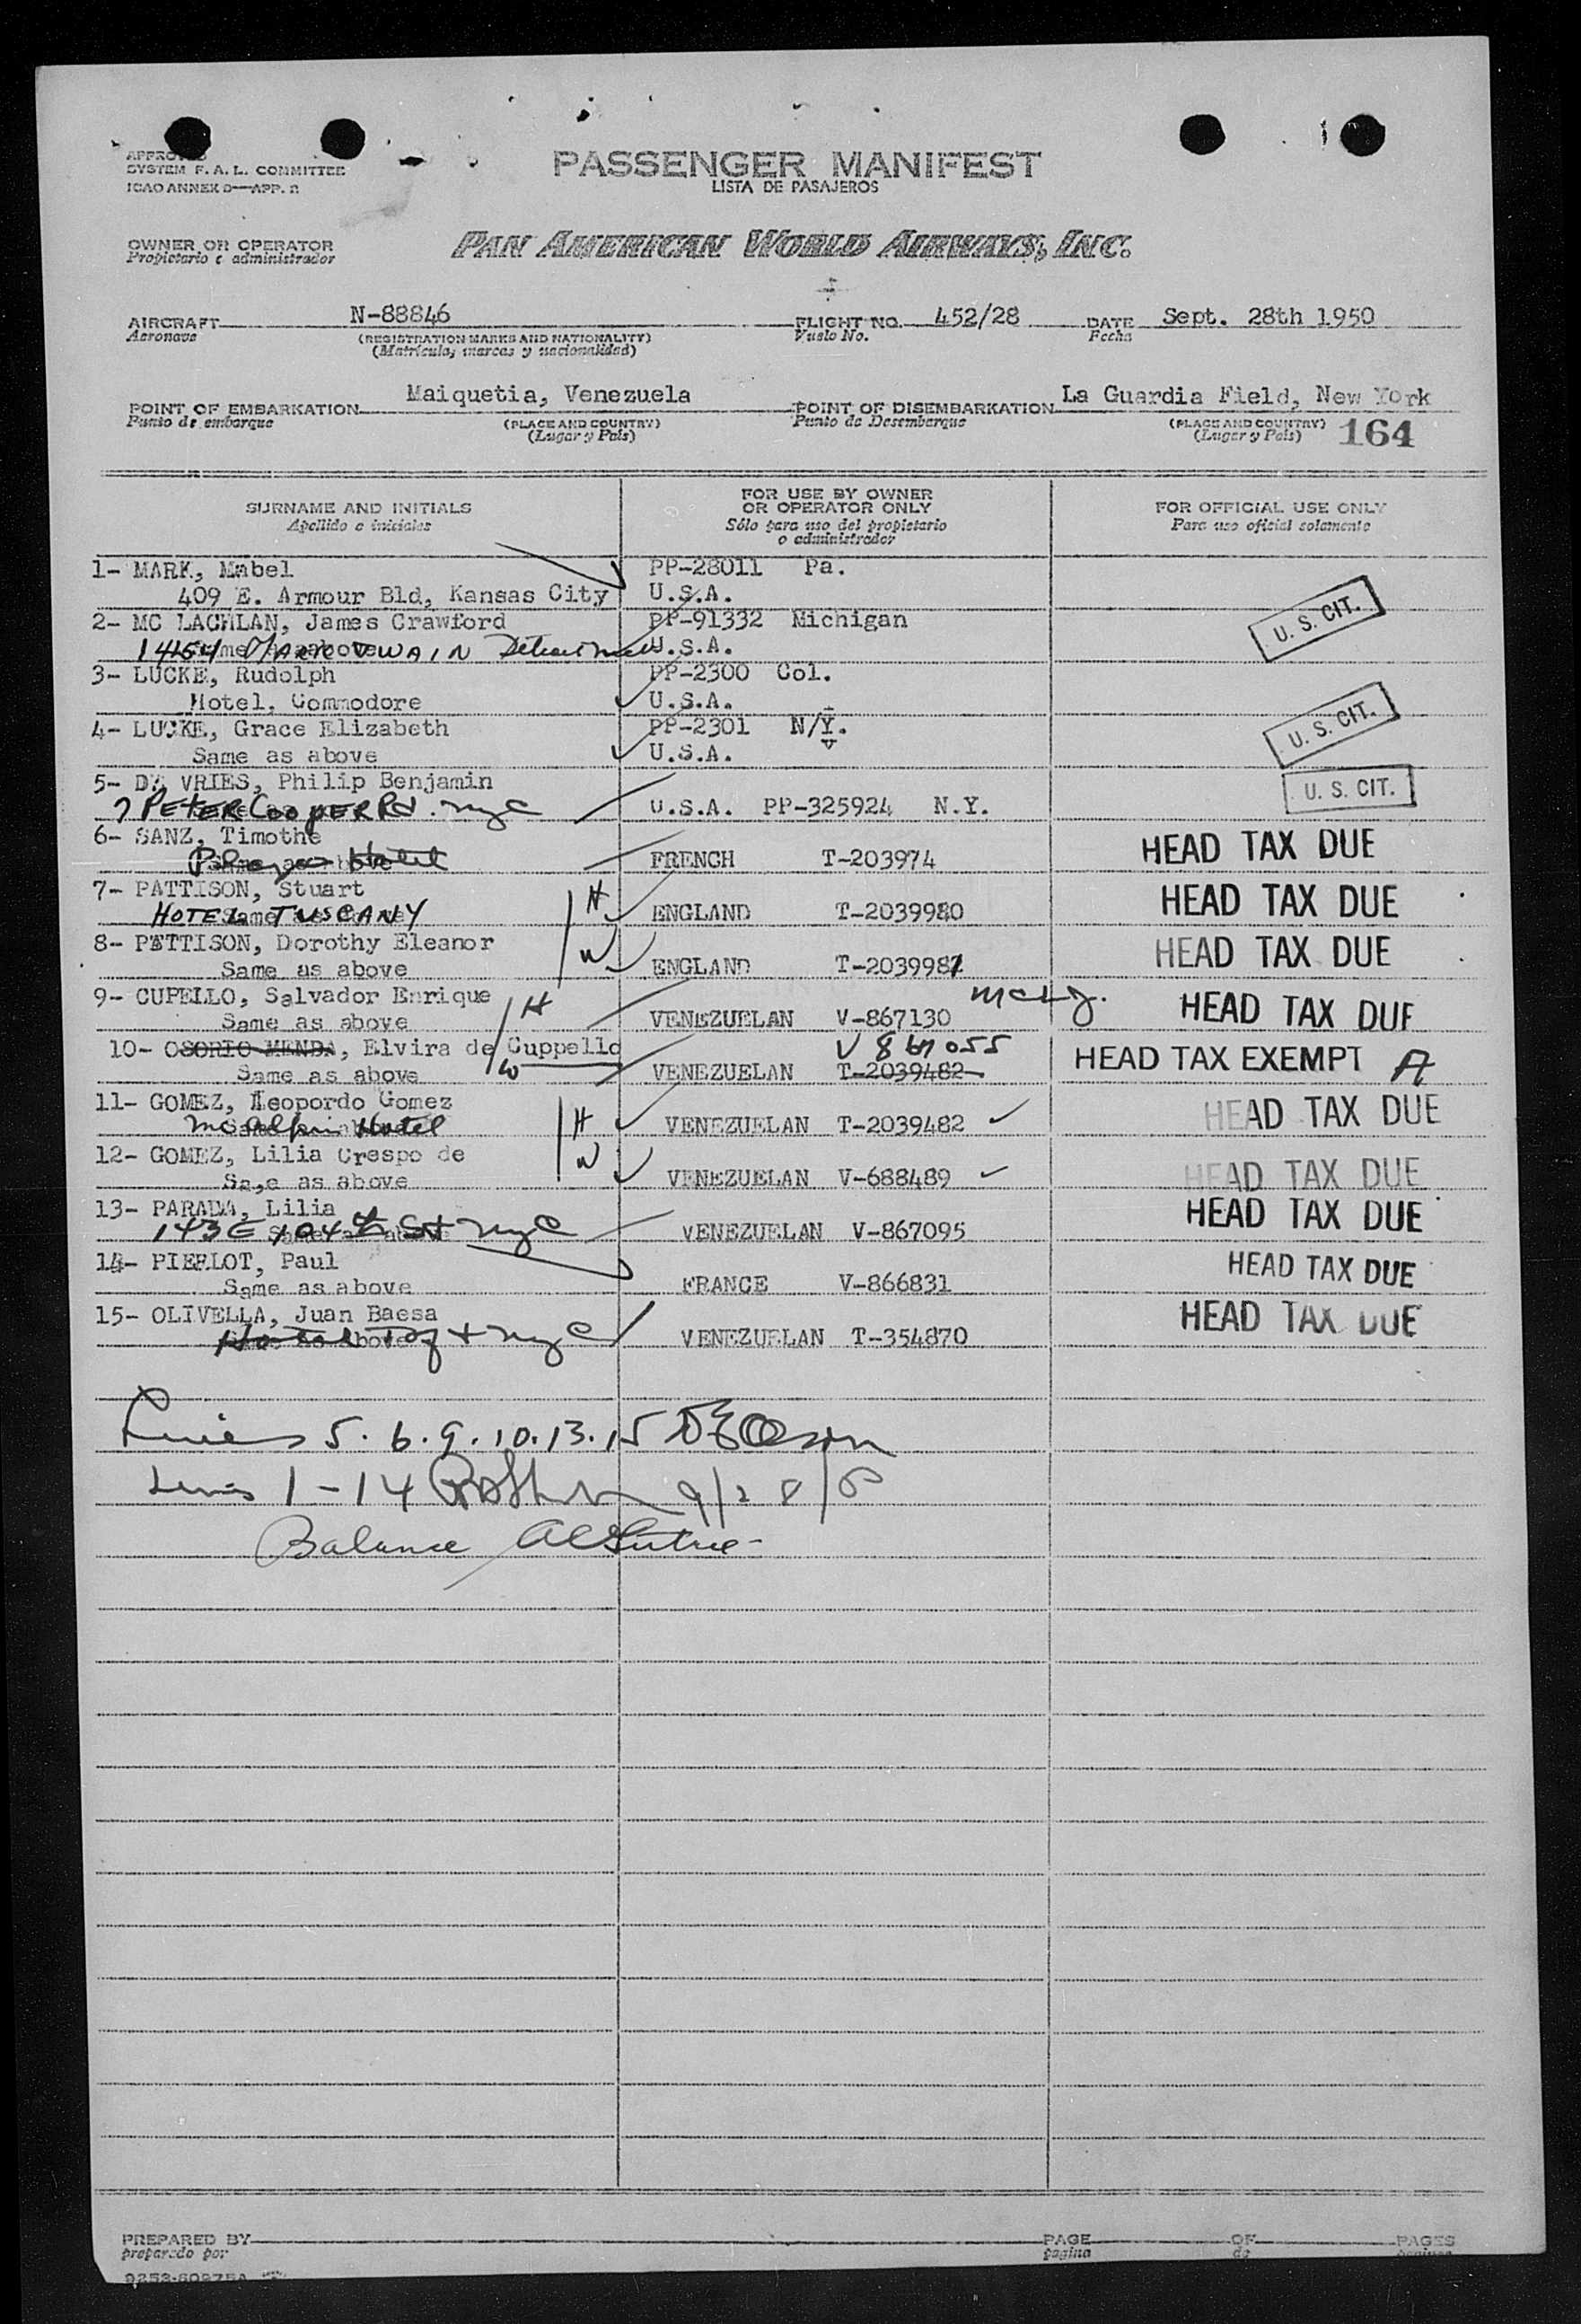 APPROVED
SYSTEM F. A. L. COMMITTEE
ICAO ANNEX 9—APP. 
PASSENGER MANIFEST
LISTA DE PASAJEROS
OWNER OR OPERATOR
Propietario o administrador
PAN AMERICAN WORLD AIRWAYS, INC.
AIRCRAFT N-88846 FLIGHT NO. 452/28 DATE Sept. 28th 1950
Aeronave (REGISTRATION MARKS AND NATIONALITY) Vuelo No. Fecha
(Matrícula, marcas y nacionalidad)
POINT OF EMBARKATION Maiquetia, Venezuela POINT OF DISEMBARKATION La Guardia Field, New York
Punto de embarque (PLACE AND COUNTRY) Punto de Desembarque (PLACE AND COUNTRY)
(Lugar y País) (Lugar y País) 164
SURNAME AND INITIALS FOR USE BY OWNER OR OPERATOR ONLY FOR OFFICIAL USE ONLY
Apellido e iniciales Sólo para uso del propietario o administrador Para uso oficial solamente
1- MARK, Mabel PP-28011 Pa.
409 E. Armour Bld, Kansas City U.S.A.
2- MC LACHLAN, James Crawford PP-91332 Michigan U. S. CIT.
14164 MARK TWAIN Detroit U.S.A.
3- LUCKE, Rudolph PP-2300 Col.
Hotel, Commodore U.S.A.
4- LUCKE, Grace Elizabeth PP-2301 N/Y. U. S. CIT.
Same as above U.S.A.
5- DE VRIES, Philip Benjamin U. S. CIT.
7 PETER COOPER Rd. nyc U.S.A. PP-325924 N.Y.
6- SANZ, Timothe HEAD TAX DUE
Plaza Hotel FRENCH T-203974
7- PATTISON, Stuart H HEAD TAX DUE
HOTEL TUSCANY ENGLAND T-2039980
8- PATTISON, Dorothy Eleanor W HEAD TAX DUE
Same as above ENGLAND T-2039981
9- CUPELLO, Salvador Enrique H HEAD TAX DUE
Same as above VENEZUELAN V-867130
10- OSORIO MENDA, Elvira de Cuppello V 867055 HEAD TAX EXEMPT A
Same as above W VENEZUELAN T-2039482
11- GOMEZ, Leopordo Gomez HEAD TAX DUE
McAlpin Hotel H VENEZUELAN T-2039482
12- GOMEZ, Lilia Crespo de W HEAD TAX DUE
Sa,e as above VENEZUELAN V-688489
13- PARADA, Lilia HEAD TAX DUE
143 E 104th St nyc VENEZUELAN V-867095
14- PIERLOT, Paul HEAD TAX DUE
Same as above FRANCE V-866831
15- OLIVELLA, Juan Baesa HEAD TAX DUE
Hotel nyc VENEZUELAN T-354870
Lines 5. 6. 9. 10. 13. 15
Lines 1-14 9/28/50
Balance
PREPARED BY PAGE OF PAGES
preparado por pagina de paginas